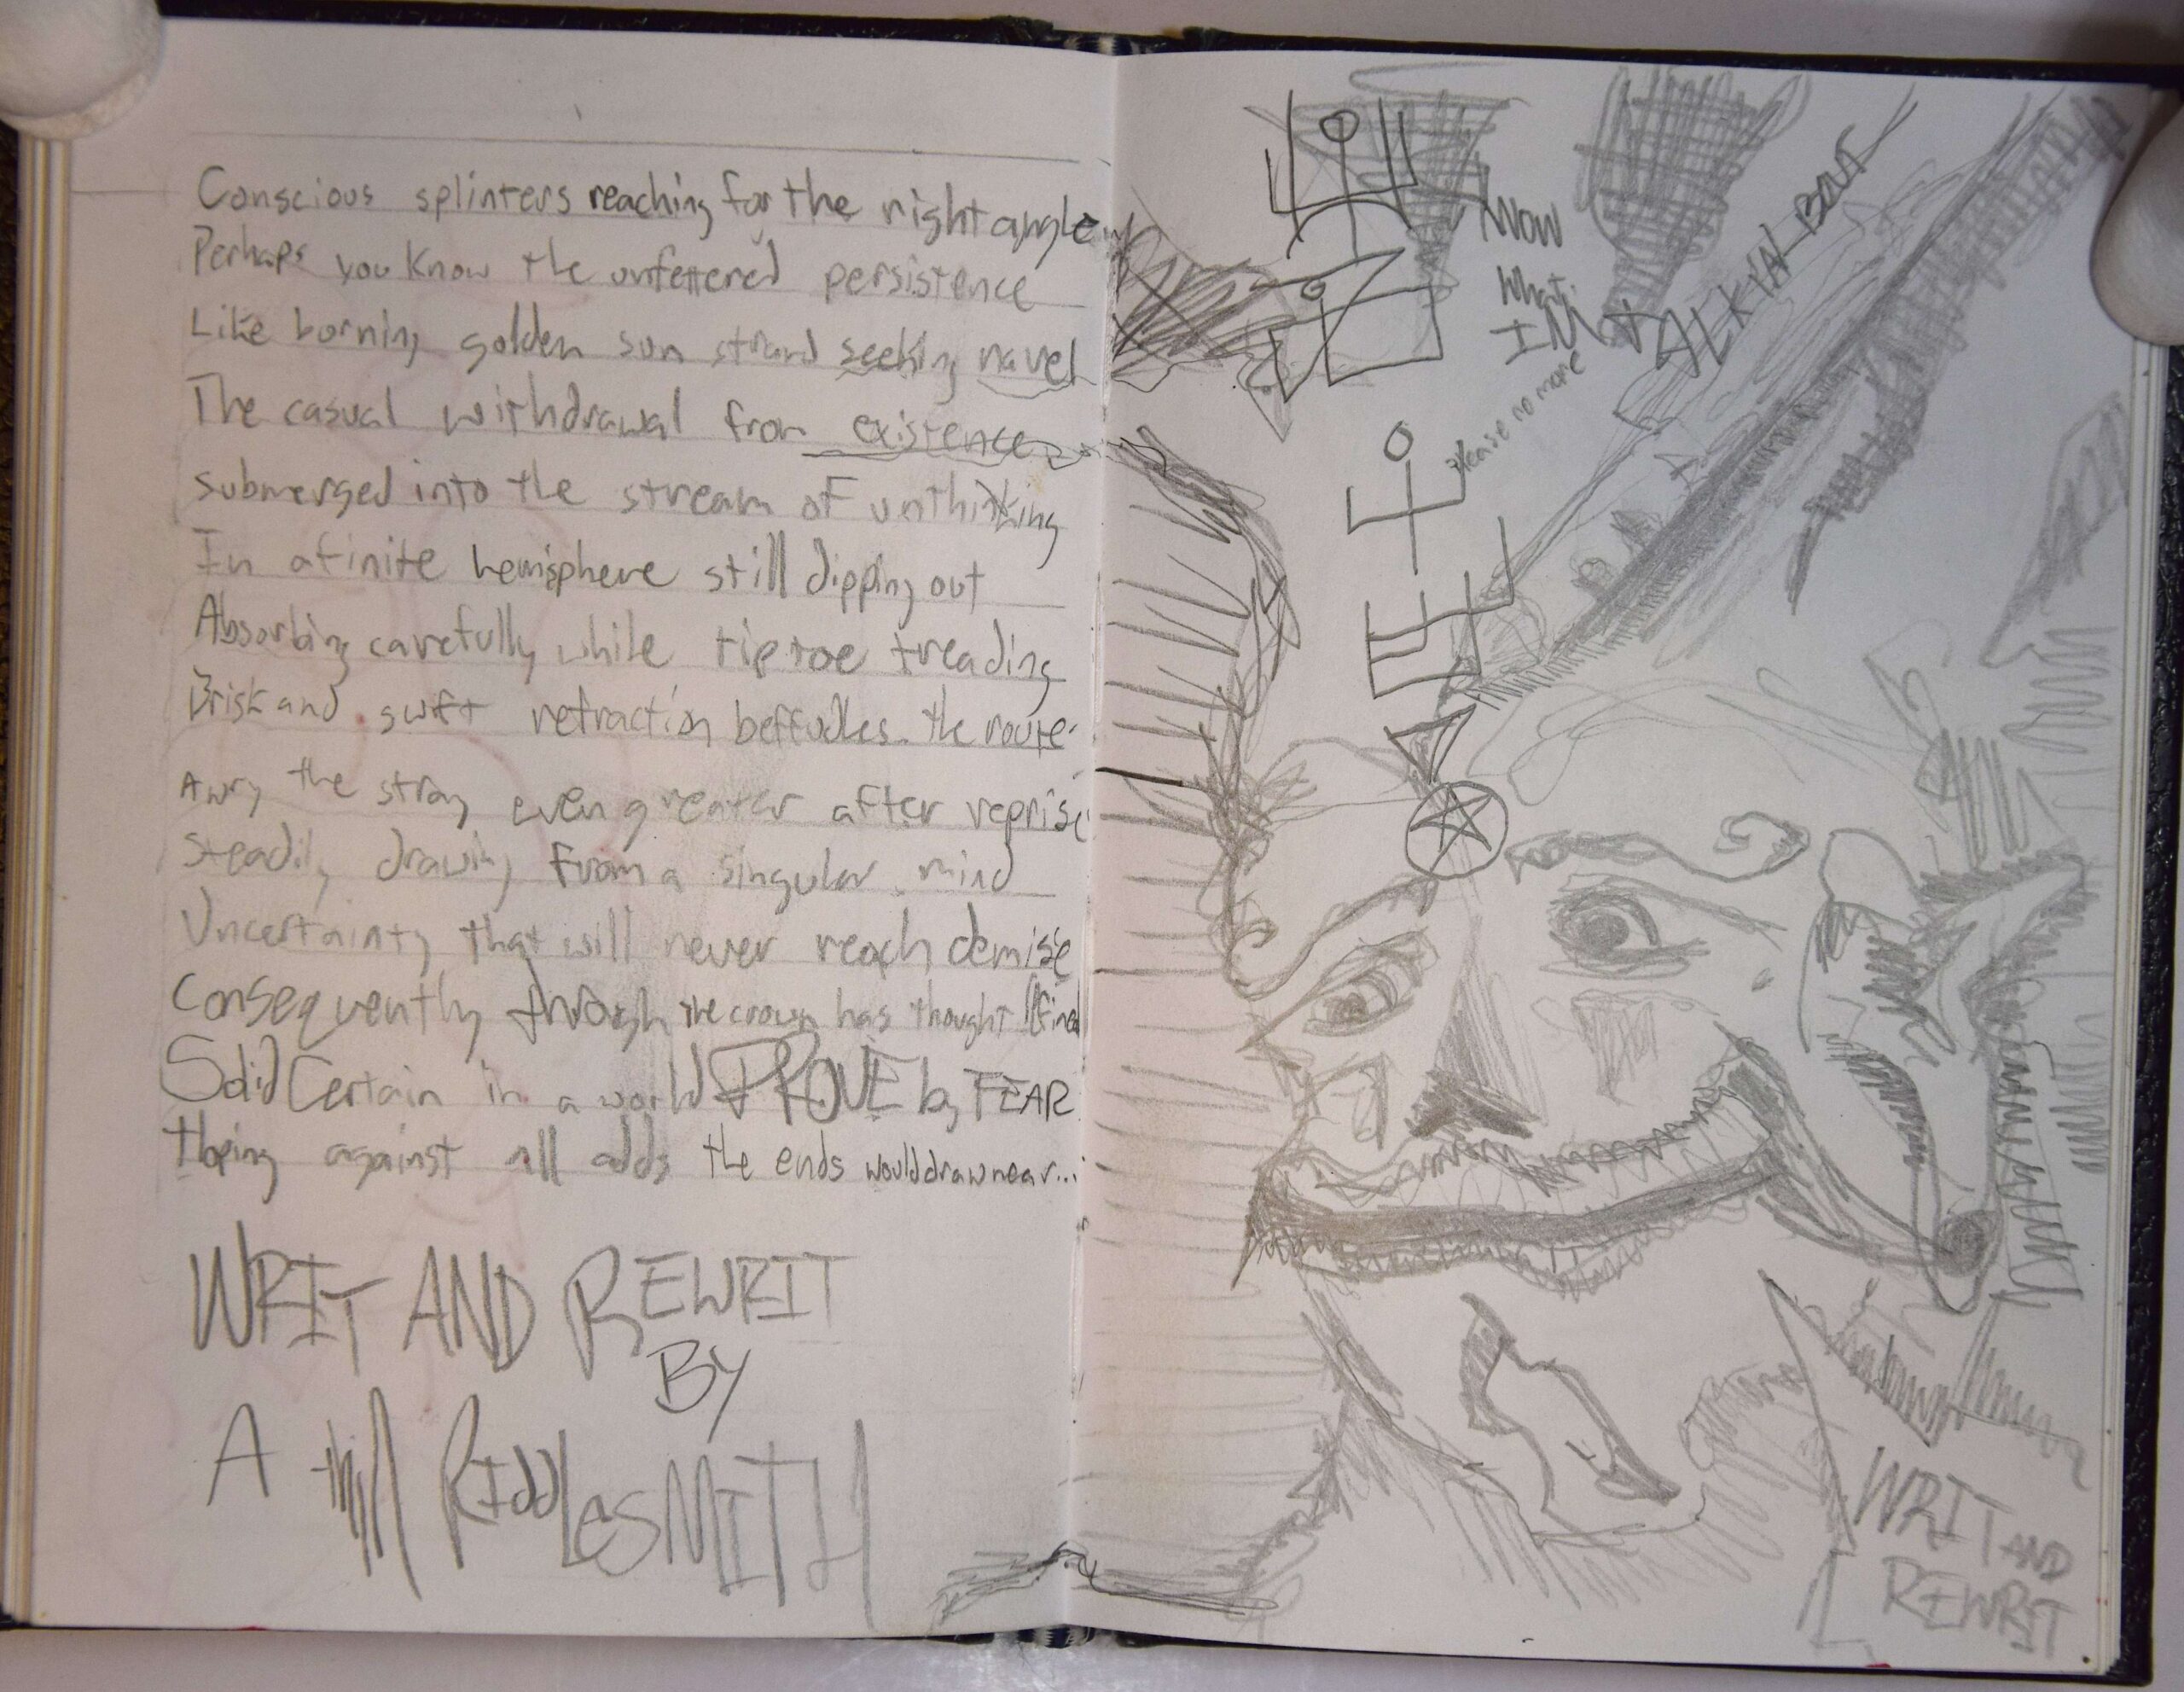 Conscious splinters reaching for the right angle
Perhaps you know the unfettered persistence
Like burning golden sun strand seeking navel
The casual withdrawal from existence
submerged into the stream of unthinking
In a finite hemisphere still dipping out
Absorbing carefully while tip toe treading
Brisk and swift retraction beffudles the route
Awry the stray even greater after reprise
Steadily drawing from a singular mind
Uncertainty that will never reach demise
Consequently through the crown has thought
Solid Certain in a world by FEAR
Hoping against all odds the ends would draw near...
WRIT AND REWRIT
BY
A RIDDLESMITH
NOW
What
IM TALKIN BOUT
please no more
WRIT AND
REWRIT